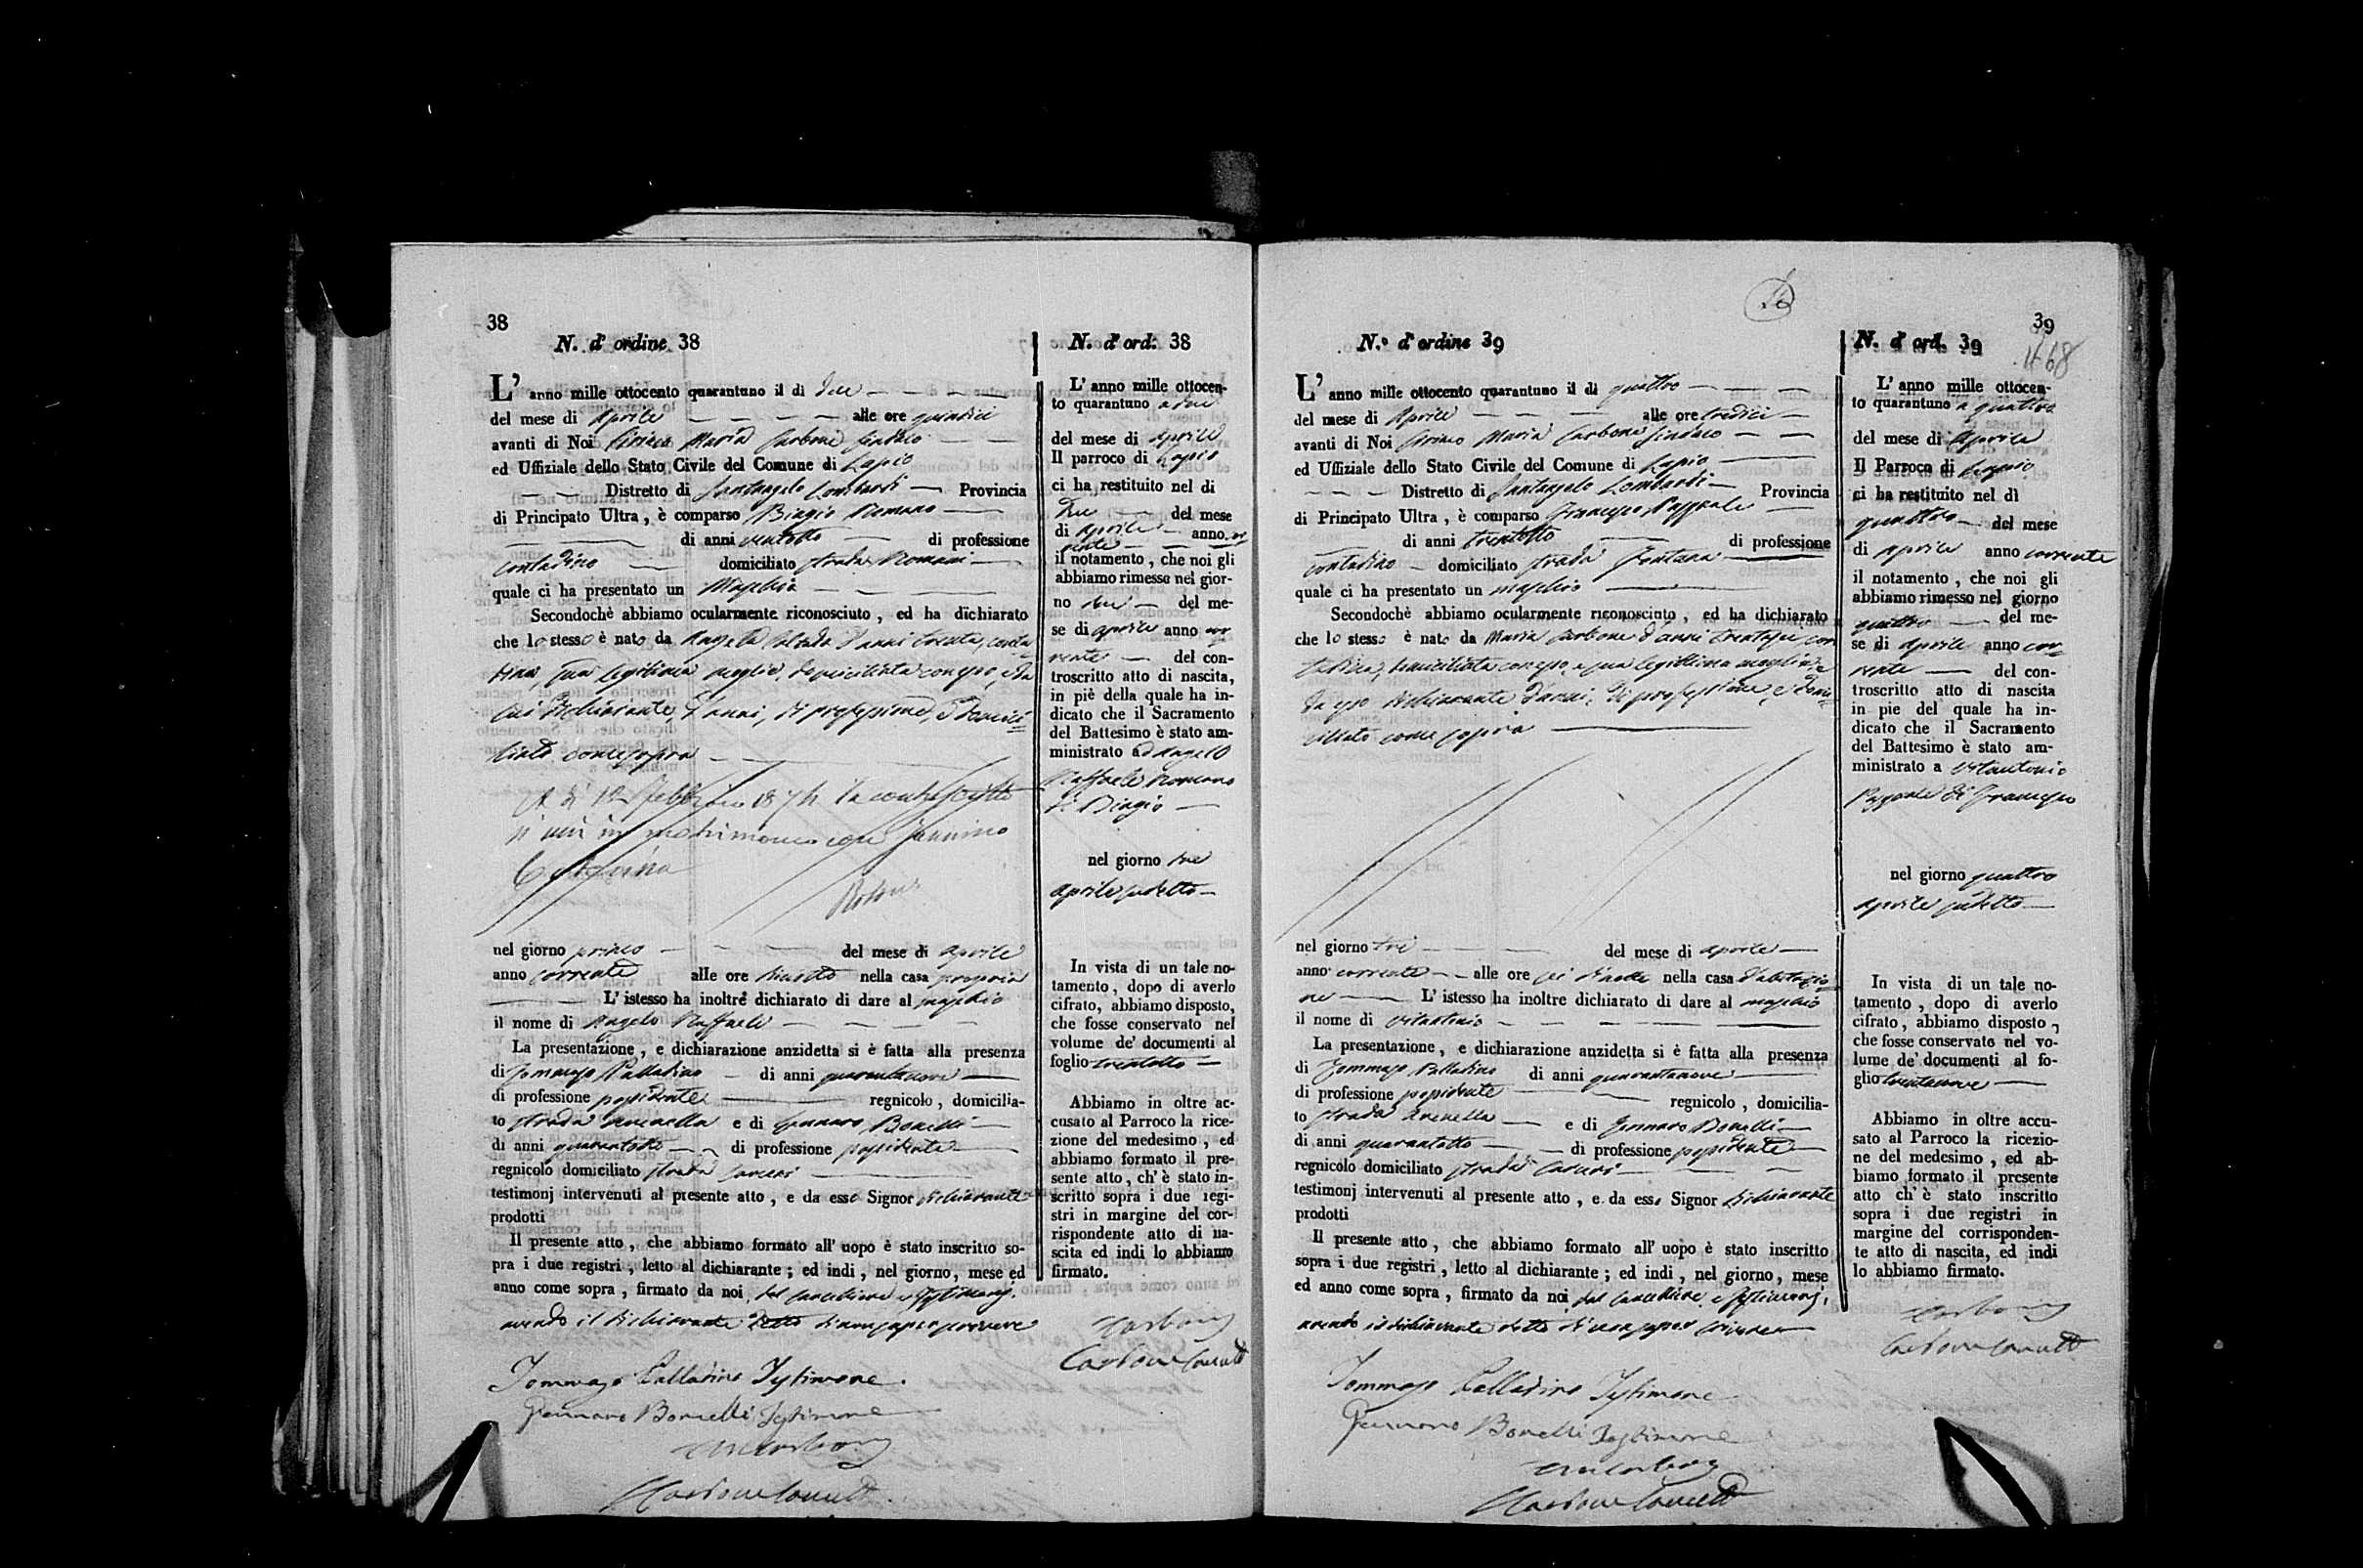 38
N. d' ordine 38
L' anno mille ottocento quarantuno il di due
del mese di Aprile alle ore quindici
avanti di Noi Ciriaco Maria Carbone Sindaco
ed Uffiziale dello Stato Civile del Comune di Lapio
Distretto di Santangelo Lombardi Provincia
di Principato Ultra, è comparso Biagio Romano
di anni di professione
contadino domiciliato strada Romani
quale ci ha presentato un Maschio
Secondochè abbiamo ocularmente riconosciuto, ed ha dichiarato
che lo stesso è nato da Angela d'anni trenta, conta-
dina, sua legitima moglie, domiciliata con esso, e da
lui dichiarante, d'anni, di professione, e domici=
liato come sopra
A dì 12 Febbraio 1874 la controscritto
si unì in matrimonio con Jannino
nel giorno primo del mese di Aprile
anno corrente alle ore dieciotto nella casa propria
L' istesso ha inoltre dichiarato di dare al maschio
il nome di Angelo Raffaele
La presentazione, e dichiarazione anzidetta si è fatta alla presenza
di Tommaso Palladino di anni quarantanove
di professione possidente regnicolo, domicilia-
to strada e di Gennaro Bonelli
di anni quarantotto di professione possidente
regnicolo domiciliato strada
testimonj intervenuti al presente atto, e da esso Signor dichiarante
prodotti
Il presente atto, che abbiamo formato all' uopo è stato inscritto so-
pra i due registri, letto al dichiarante; ed indi, nel giorno, mese ed
anno come sopra, firmato da noi, dal cancelliere e testimonj,
avendo il dichiarante detto di non saper scrivere
Tommaso Palladino Testimone.
Gennaro Bonelli Testimone
Carbone
N. d' ord: 38
L' anno mille ottocen-
to quarantuno a due
del mese di Aprile
Il parroco di Lapio
ci ha restituito nel di
due del mese
di Aprile anno cor
rente
il notamento, che noi gli
abbiamo rimesso nel gior-
no due del me-
se di Aprile anno cor
rente del con-
troscritto atto di nascita,
in piè della quale ha in-
dicato che il Sacramento
del Battesimo è stato am-
ministrato ad Angelo
Raffaele Romano
di Biagio
nel giorno due
Aprile sudetto
In vista di un tale no-
tamento, dopo di averlo
cifrato, abbiamo disposto,
che fosse conservato nel
volume de' documenti al
foglio trentotto
Abbiamo in oltre ac-
cusato al Parroco la rice-
zione del medesimo, ed
abbiamo formato il pre-
sente atto, ch' è stato in-
scritto sopra i due regi-
stri in margine del cor-
rispondente atto di na-
scita ed indi lo abbiamo
firmato.
Carbone
39
468
N.° d' ordine 39
L' anno mille ottocento quarantuno il di quattro
del mese di Aprile alle ore tredici
avanti di Noi Ciriaco Maria Carbone Sindaco
ed Uffiziale dello Stato Civile del Comune di Lapio
Distretto di Santangelo Lombardi Provincia
di Principato Ultra, è comparso Francesco Pappale
di anni trentotto di professione
contadino domiciliato strada Fontana
quale ci ha presentato un maschio
Secondochè abbiamo ocularmente riconosciuto, ed ha dichiarato
che lo stesso è nato da Maria Carbone d'anni trentasei con
tadina, domiciliata con esso, e sua legittima moglie, e
da esso dichiarante d'anni, di professione, e domi=
ciliato come sopra
nel giorno tre del mese di Aprile
anno corrente alle ore sei di notte nella casa d'abitazio
ne L' istesso ha inoltre dichiarato di dare al maschio
il nome di Vitantonio
La presentazione, e dichiarazione anzidetta si è fatta alla presenza
di Tommaso Palladino di anni quarantanove
di professione possidente regnicolo, domicilia-
to strada e di Gennaro Bonelli
di anni quarantotto di professione possidente
regnicolo domiciliato strada
testimonj intervenuti al presente atto, e da esso Signor dichiarante
prodotti
Il presente atto, che abbiamo formato all' uopo è stato inscritto
sopra i due registri, letto al dichiarante; ed indi, nel giorno, mese
ed anno come sopra, firmato da noi, dal cancelliere e testimonj,
avendo il dichiarante detto di non saper scrivere
Tommaso Palladino Testimone
Gennaro Bonelli Testimone
Carbone
N. d' ord. 39
L' anno mille ottocen-
to quarantuno a quattro
del mese di Aprile
Il Parroco di Lapio
ci ha restituito nel dì
quattro del mese
di Aprile anno corrente
il notamento, che noi gli
abbiamo rimesso nel giorno
quattro del me-
se di Aprile anno cor-
rente del con-
troscritto atto di nascita
in pie del quale ha in-
dicato che il Sacramento
del Battesimo è stato am-
ministrato a Vitantonio
Pappale di Francesco
nel giorno quattro
Aprile sudetto
In vista di un tale no-
tamento, dopo di averlo
cifrato, abbiamo disposto,
che fosse conservato nel vo-
lume de' documenti al fo-
glio trentanove
Abbiamo in oltre accu-
sato al Parroco la ricezio-
ne del medesimo, ed ab-
biamo formato il presente
atto ch' è stato inscritto
sopra i due registri in
margine del corrisponden-
te atto di nascita, ed indi
lo abbiamo firmato.
Carbone